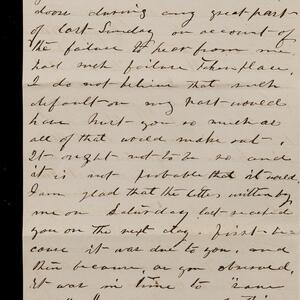 dose during any great part
of last Sunday on account of
the failure to hear from me
had such failure taken place.
I do not believe that such
default on my part would
have hurt you so much as
all of that would make out.
It ought not to be so and
it is not probable that it would.
I am glad that the letter written by
me on Saturday last reached
you on the next day. first be-
cause it was due to you, and
then because, as you observed,
it was in time to save